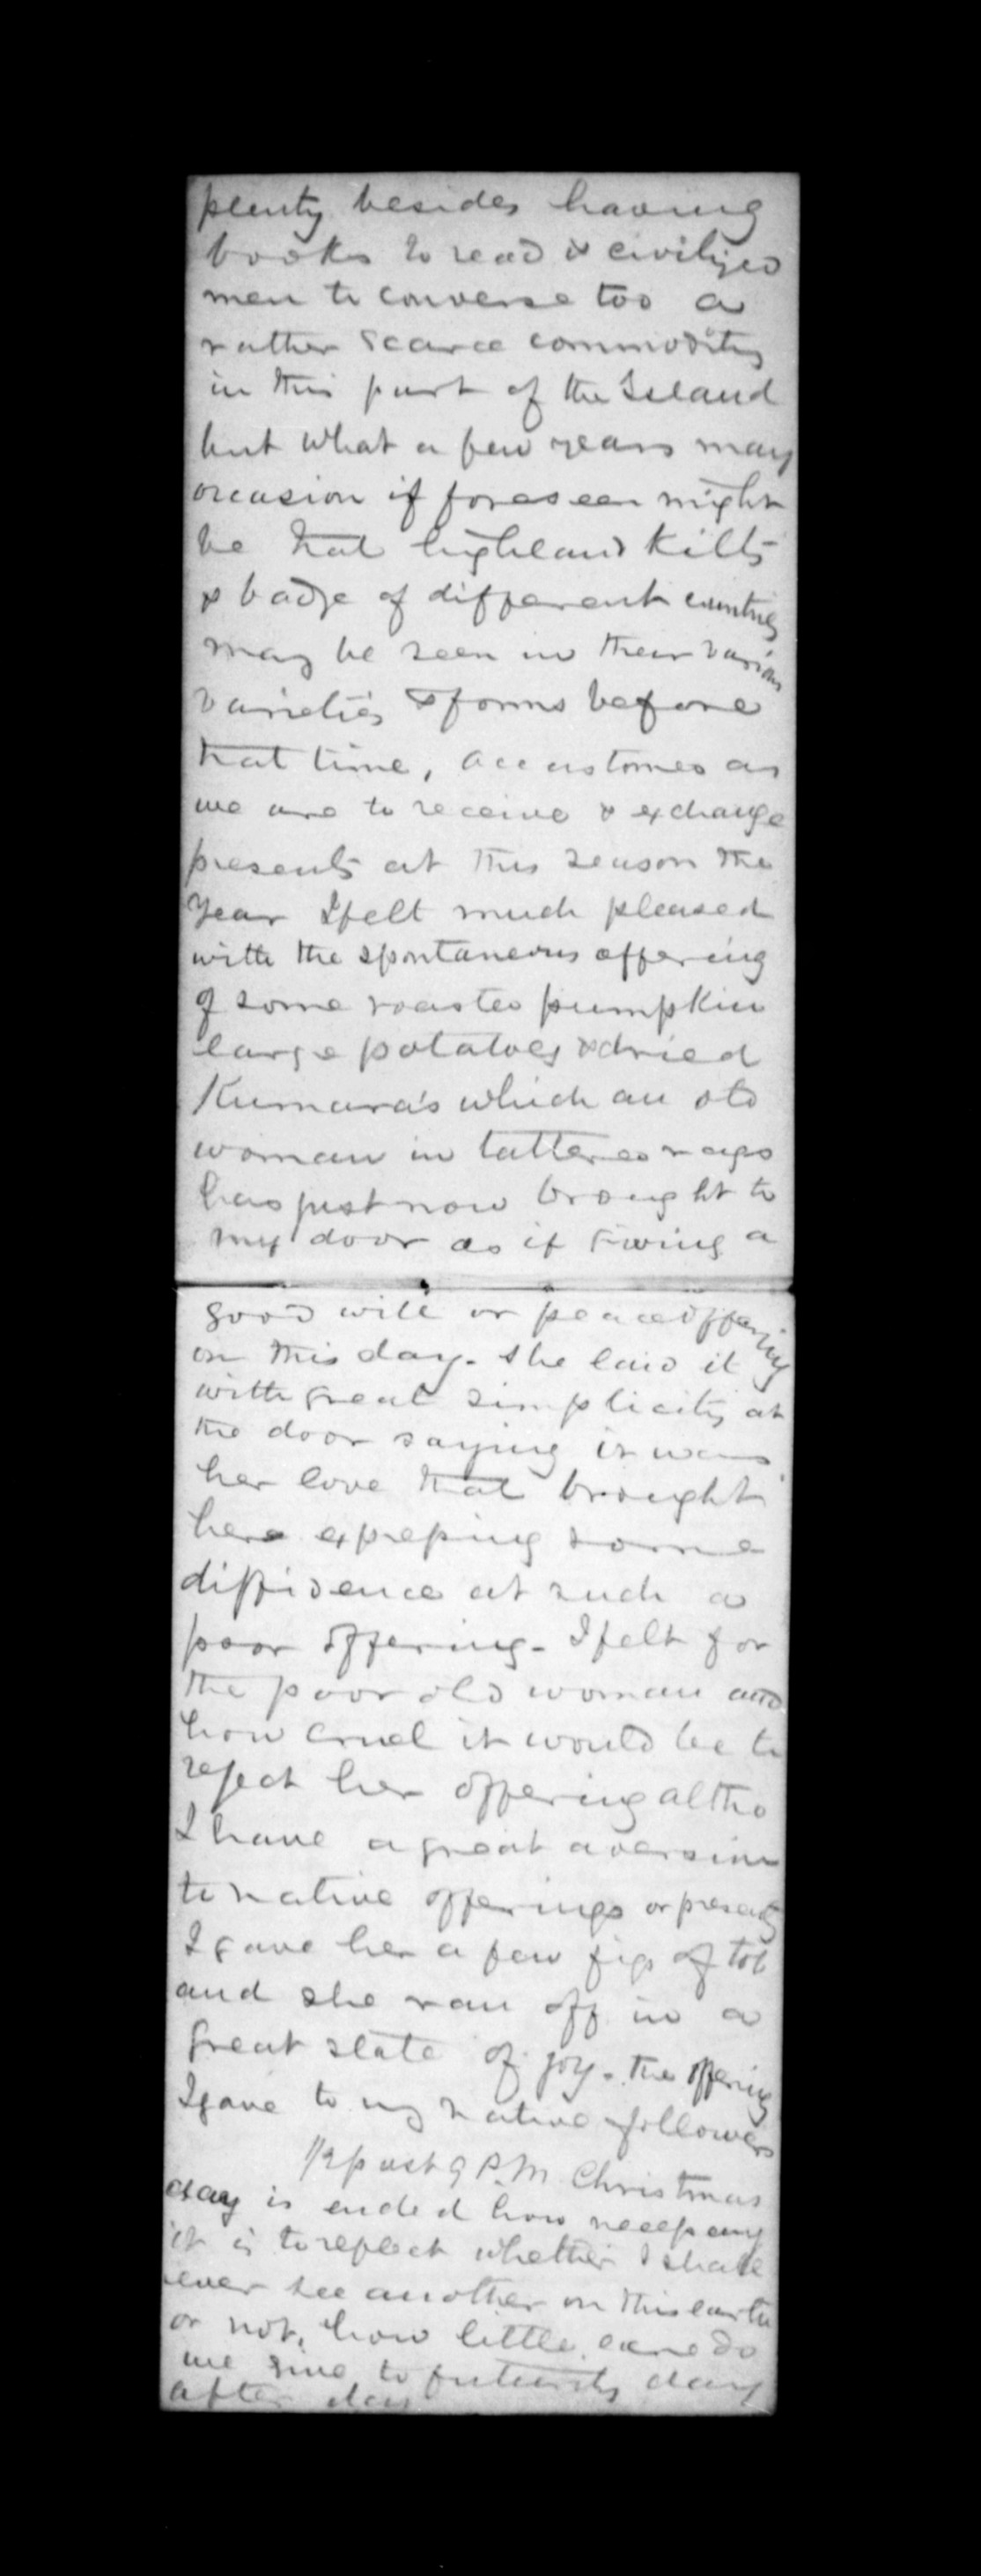 plenty besides having
books to read & civilized
men to converse too a
rather scarce commodity
in this part of the Island
but what a few years may
occasion if foreseen might
be that highland kilts
& badge of different countries
may be seen in their various
varieties & forms before
that time, accustomed as
we are to receive & exchange
presents at this season the
Year I felt much pleased
with the spontaneous offering
of some roasted pumpkin
large potatoes & dried
Kumara's which an old
woman in tattered rags
has just now brought to
my door as if giving a
good will or peace offering
on this day. She laid it
with great simplicity at
the door saying it was
her love that brought
here expressing some
diffidence at such a
poor offering - I felt for
the poor old woman and
how cruel it would be to
reject her offering altho
I have a great aversion
to native offerings or presents
I gave her a few figs of tob
and she ran off in a
great state of joy. The offering
I gave to my native followers
1/2 past 9 P.M. Christmas
day is ended how necessary
it is to reflect whether I shall
ever see another on this earth
or not, how little care do
we give to futurity day
after day